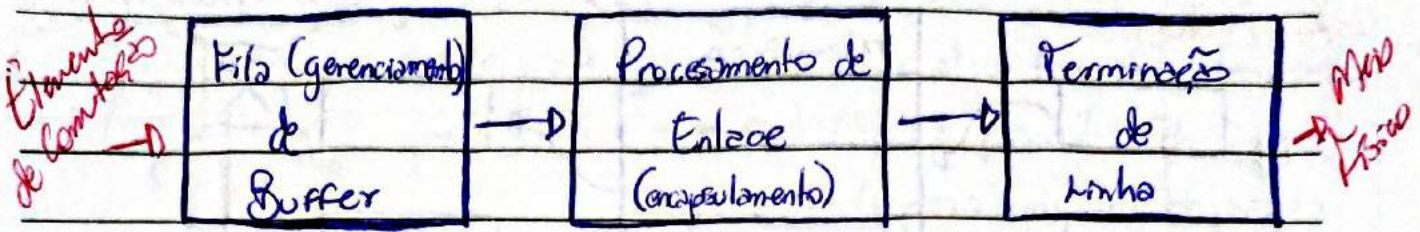 Elemento
de Comutação
Fila (gerenciamento)
de
Buffer
Processamento de
Enlace
(encapsulamento)
Terminação
de
Linha
Meio
Físico